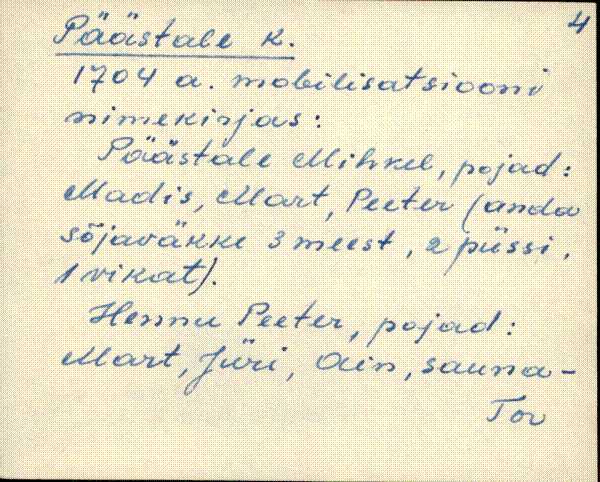 4
Päästale k.
1704 a. mobilisatsiooni
nimekirjas:
Päästale Mihkel, pojad:
Madis, Mart, Peeter (anda
sõjaväkke 3 meest, 2 püssi,
1 vikat).
Hennu Peeter, pojad:
Mart, Jüri, Ain, sauna-
Tor